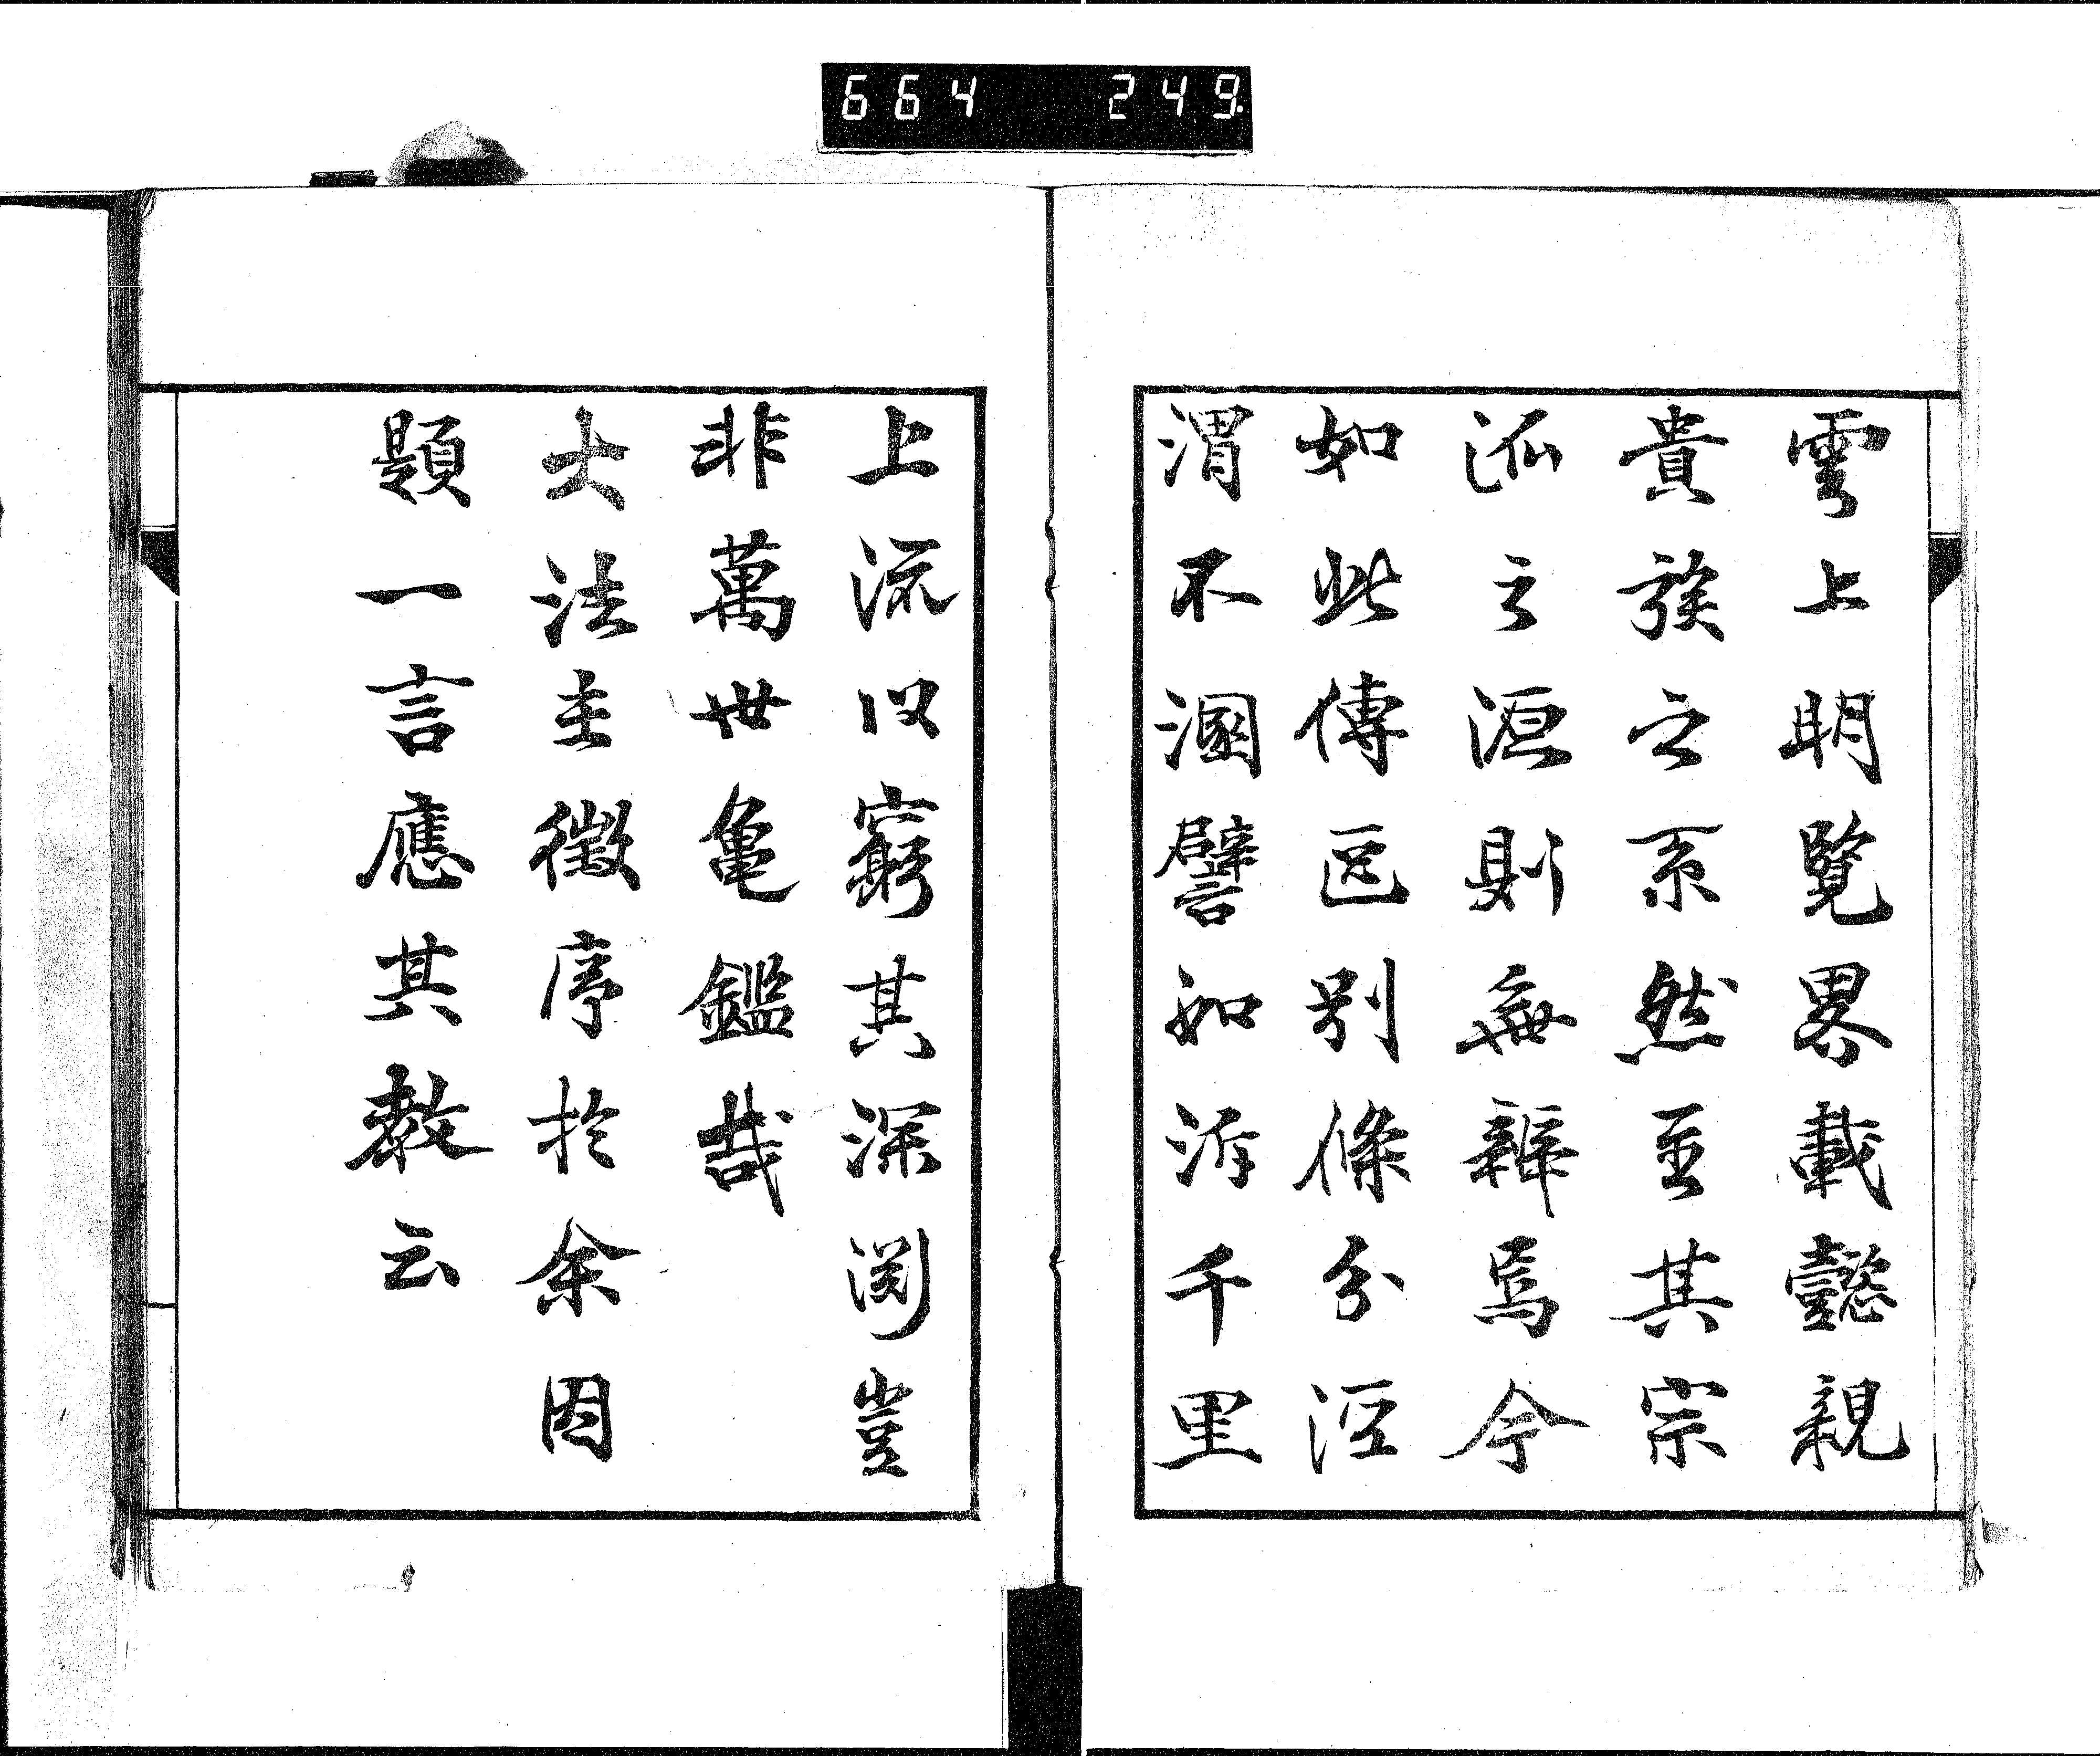 664 249
雲上明覧畧載懿親
貴族之系然至其宗
派之源則無辨焉今
如此傳區別條分涇
渭不溷譬如泝千里
上流以窮其深淵豈
非萬世亀鑑哉
大法主徴序於余因
題一言應其教云